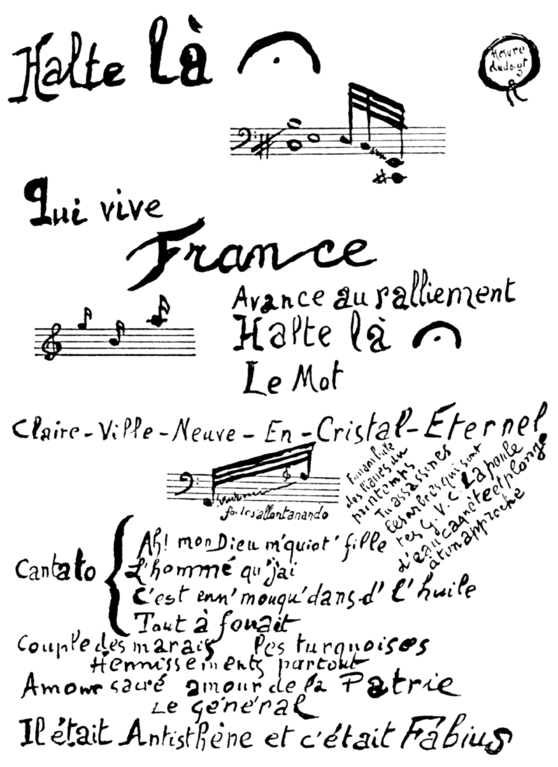 Halte là
Mesure
du doigt
Qui vive
France
Avance au ralliement
Halte là
Le Mot
Claire-Ville-Neuve-En-Cristal-Eternel
Funambule
des lianes du
printemps
Tu assassines
les arbres qui sont
tes G.V.C La poule
d'eau caquète et plonge
à ton approche
allontanando
Cantato
Ah! mon Dieu m'quiot' fille
L'hommé qu'jai
C'est enn' mouqu' dans d' l'huile
Tout à fouait
Couple des marais Les turquoises
Hennissements partout
Amour sacré amour de la Patrie
Le général
Il était Antisthène et c'était Fabius